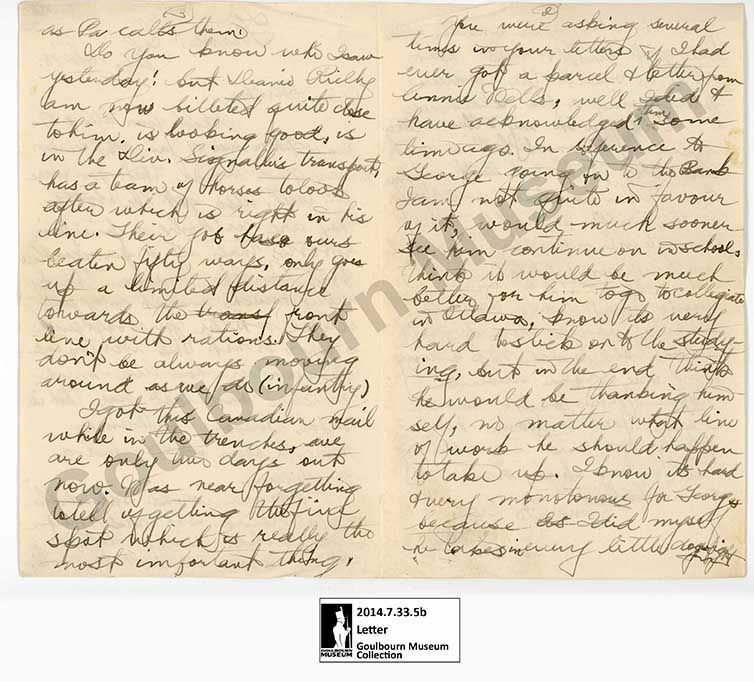 as Pa calls them.
Do you know who I saw
yesterday! but Rielly
am now billeted quite close
to him, is looking good, is
in the Div. Signallers transport,
has a team of horses to look
after which is right in his
line. Their job has ours
beaten fifty ways, only goes
up a limited distance
towards the trans front
line with rations. They
don't be always moving
around as we do (infantry)
I got this Canadian mail
while in the trenches, we
are only two days out
now. Was near forgetting
to tell of getting the five
spot which is really the
most important thing.
2
You were asking several
times in your letters if I had
ever got a parcel & letter from
Annie Wells, well I did &
have acknowledged them some
time ago. In reference to
George going in to the Bank
I am not quite in favour
of it, would much sooner
see him continue on in school,
think it would be much
better for him to go to collegiate
in Ottawa, know its very
hard to stick on to the study-
ing, but in the end think
he would be thanking him-
self, no matter what line
of work he should happen
to take up. I know its hard
& very monotonous for George
because as I did myself
he takes in every little
Goulbourn Museum
2014.7.33.5b
Letter
Goulbourn Museum
Collection
GOULBOURN
MUSEUM